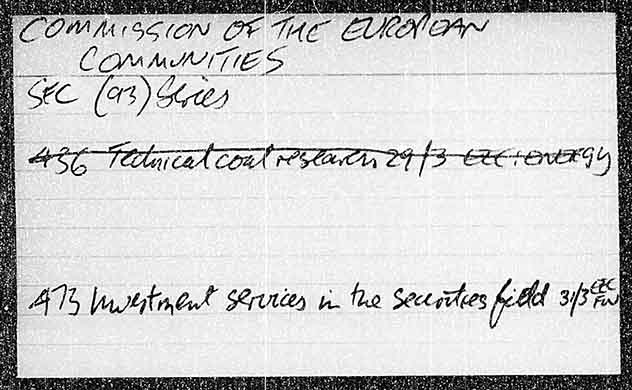 COMMISSION OF THE EUROPEAN
COMMUNITIES
SEC (93) Series
436 Technical coal research 29/3 EEC: ENERGY
473 Investment services in the securities field 31/3 EEC
FIN